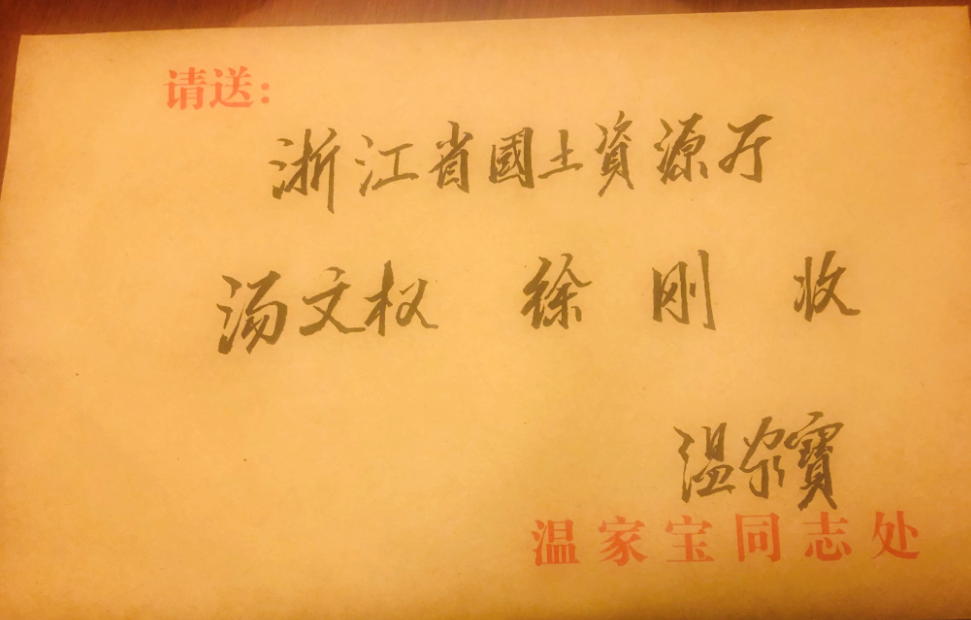 请送:
浙江省國土資源厅
汤文权 徐刚 收
温家寳
温家宝同志处